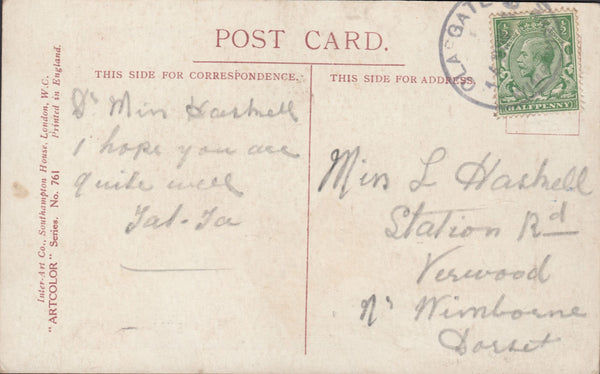 POST CARD.
THIS SIDE FOR CORRESPONDENCE.
THIS SIDE FOR ADDRESS.
Inter-Art Co., Southampton House, London, W.C.
"ARTCOLOR" Series. No. 761 Printed in England.
Dr Miss Haskell
I hope you are
quite well
Tat-Ta
Miss L Haskell
Station Rd
Verwood
Nr Wimborne
Dorset
½
½
HALFPENNY